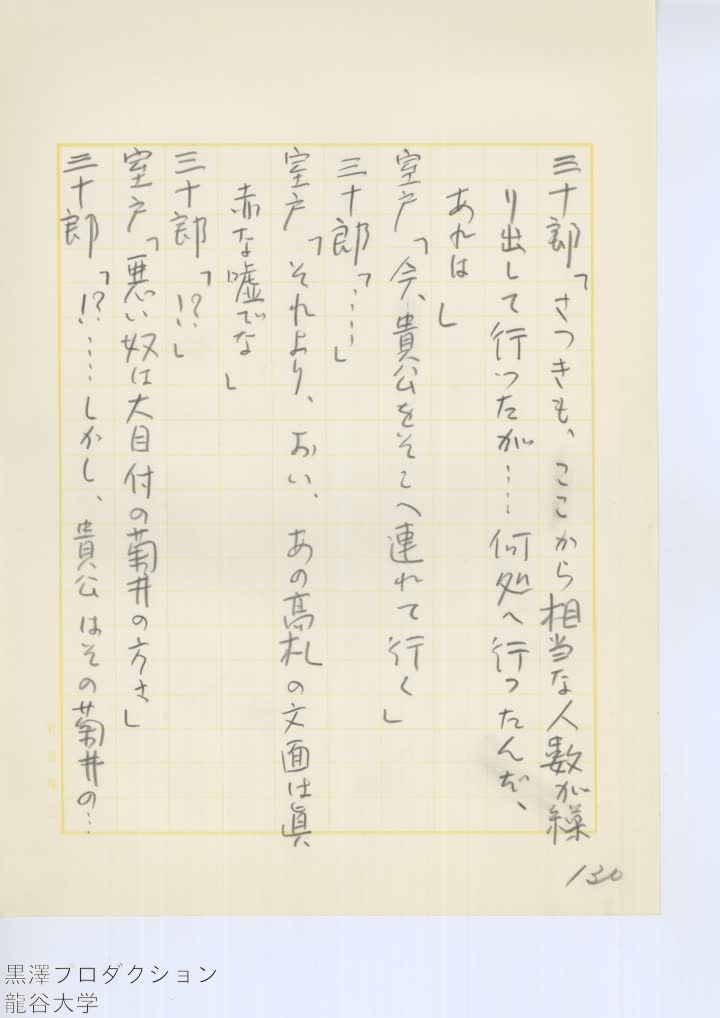 三十郎「さつきも、ここから相当な人数が繰
り出して行つたが……何処へ行つたんだ、
あれは」
室戸「今、貴公をそこへ連れて行く」
三十郎「……」
室戸「それより、おい、あの高札の文面は眞
赤な嘘でな」
三十郎「!?」
室戸「悪い奴は大目付の菊井の方さ」
三十郎「!?……しかし、貴公はその菊井の…
130
黒澤プロダクション
龍谷大学